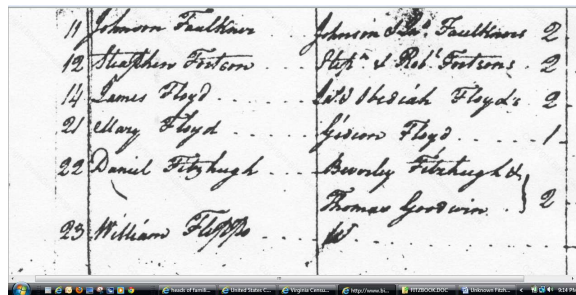 11 Johnson Faulkner Johnson & Jno. Faulkners 2
12 Steaphen Fortson Stepn & Robt Fortsons 2
14 James Floyd Obediah Floyds 2
21 Mary Floyd Gideon Floyd 1
22 Daniel Fitzhugh Beverly Fitzhugh &
Thomas Goodwin } 2
23 William Flippo W
heads of famili... United States C... Virginia Censu... http://www.bi... FITZBOOK.DOC Unknown Fitzh... 9:14 PM